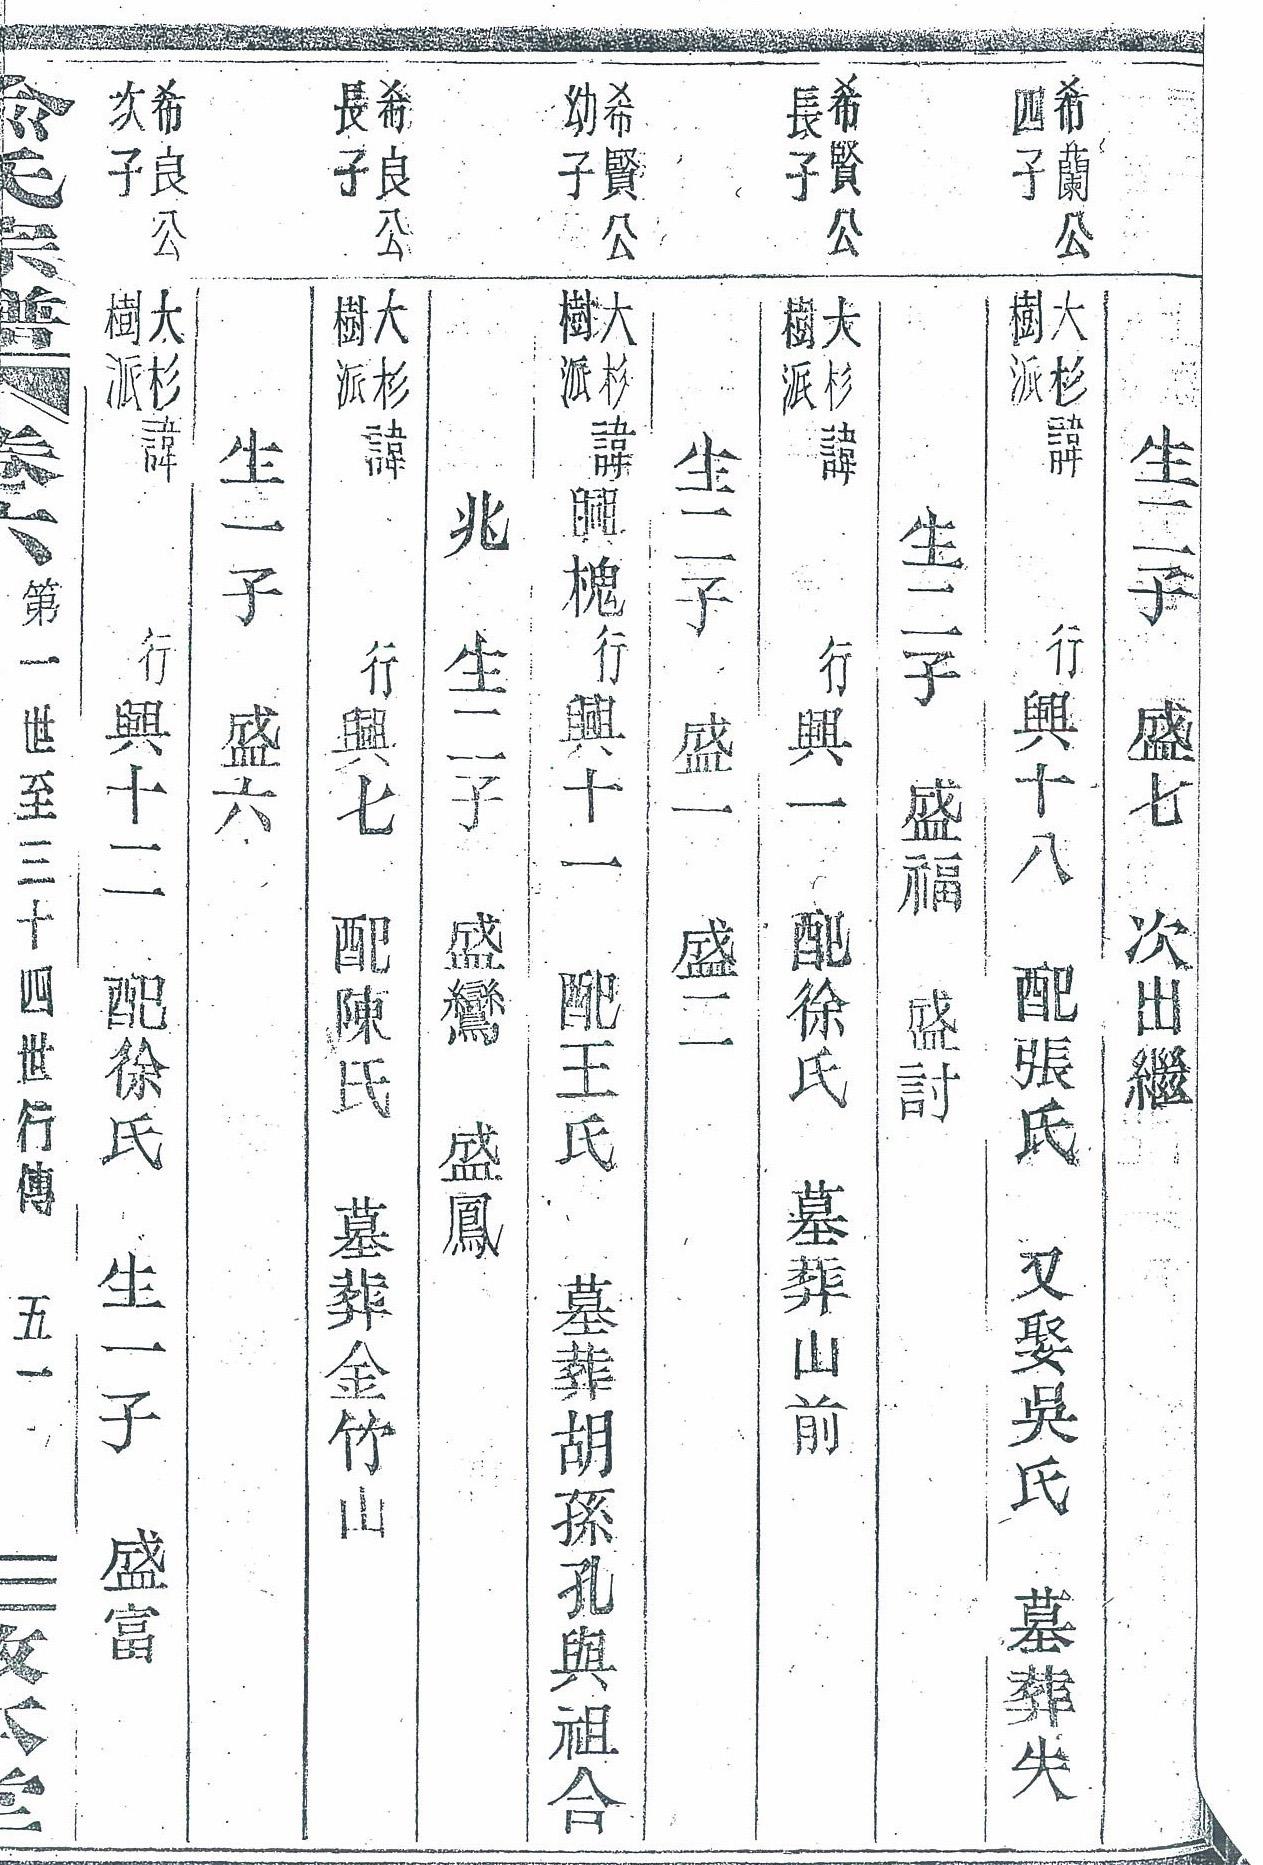 生二子　盛七　次出繼
希蘭公四子　大杉樹派　諱　行興十八　配張氏　又娶吳氏　墓葬失
生二子　盛福　盛討
希賢公長子　大杉樹派　諱　行興一　配徐氏　墓葬山前
生二子　盛一　盛二
希賢公幼子　大杉樹派　諱興槐行興十一　配王氏　墓葬胡孫孔與祖合
兆　生二子　盛鸞　盛鳳
希良公長子　大杉樹派　諱　行興七　配陳氏　墓葬金竹山
生一子　盛六
希良公次子　大杉樹派　諱　行興十二　配徐氏　生一子　盛富
氏宗譜　卷六　第一世至三十四世行傳　五一